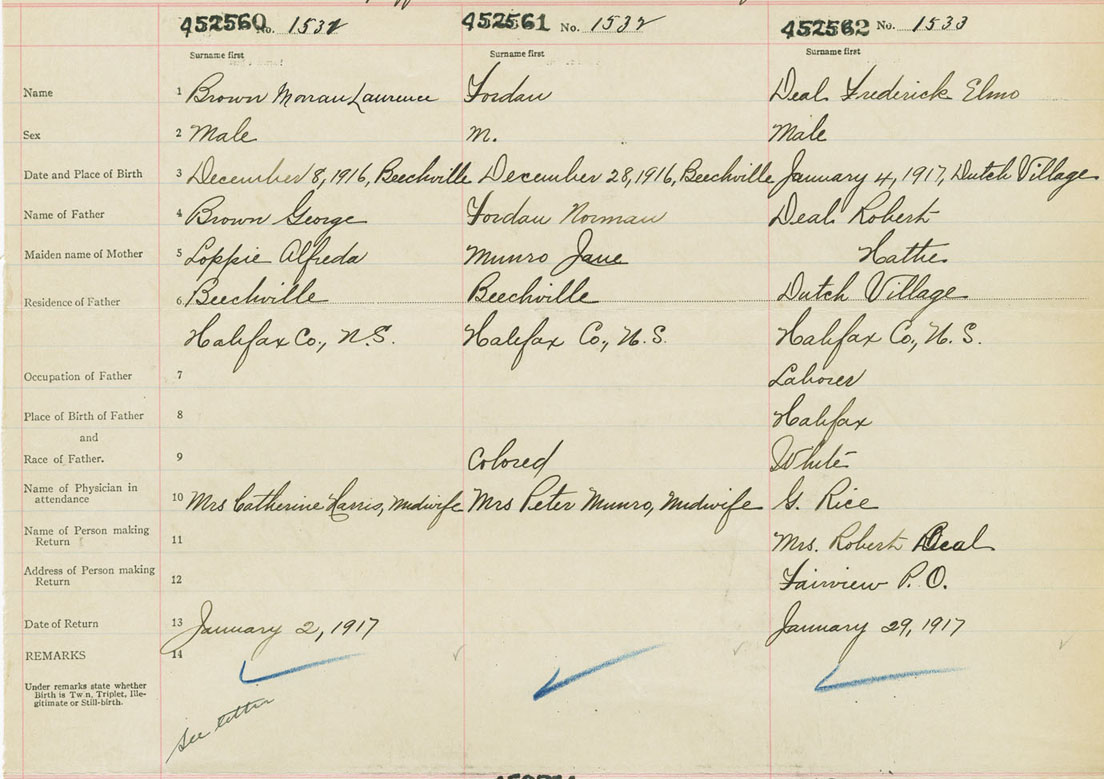 452560 No. 1531 452561 No. 1532 452562 No. 1533
Surname first Surname first Surname first
Name 1 Brown Laurence Jordan Deal Frederick Elmo
Sex 2 Male M. Male
Date and Place of Birth 3 December 8, 1916, Beechville December 28, 1916, Beechville January 4, 1917, Dutch Village
Name of Father 4 Brown George Jordan Norman Deal Robert
Maiden name of Mother 5 Loppie Alfreda Munro Jane Hattie
Residence of Father 6 Beechville Beechville Dutch Village
Halifax Co., N.S. Halifax Co., N.S. Halifax Co., N.S.
Occupation of Father 7 Laborer
Place of Birth of Father 8 Halifax
and
Race of Father. 9 Colored White
Name of Physician in
attendance 10 Mrs Catherine Harris, Midwife Mrs Peter Munro, Midwife G. Rice
Name of Person making
Return 11 Mrs. Robert Deal
Address of Person making
Return 12 Fairview P.O.
Date of Return 13 January 2, 1917 January 29, 1917
REMARKS 14
Under remarks state whether
Birth is Twin, Triplet, Ille-
gitimate or Still-birth.
See letter